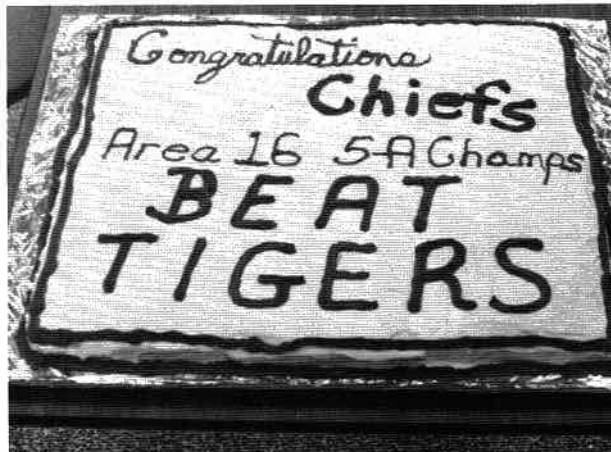 Congratulations
Chiefs
Area 16 5-A Champs
BEAT
TIGERS